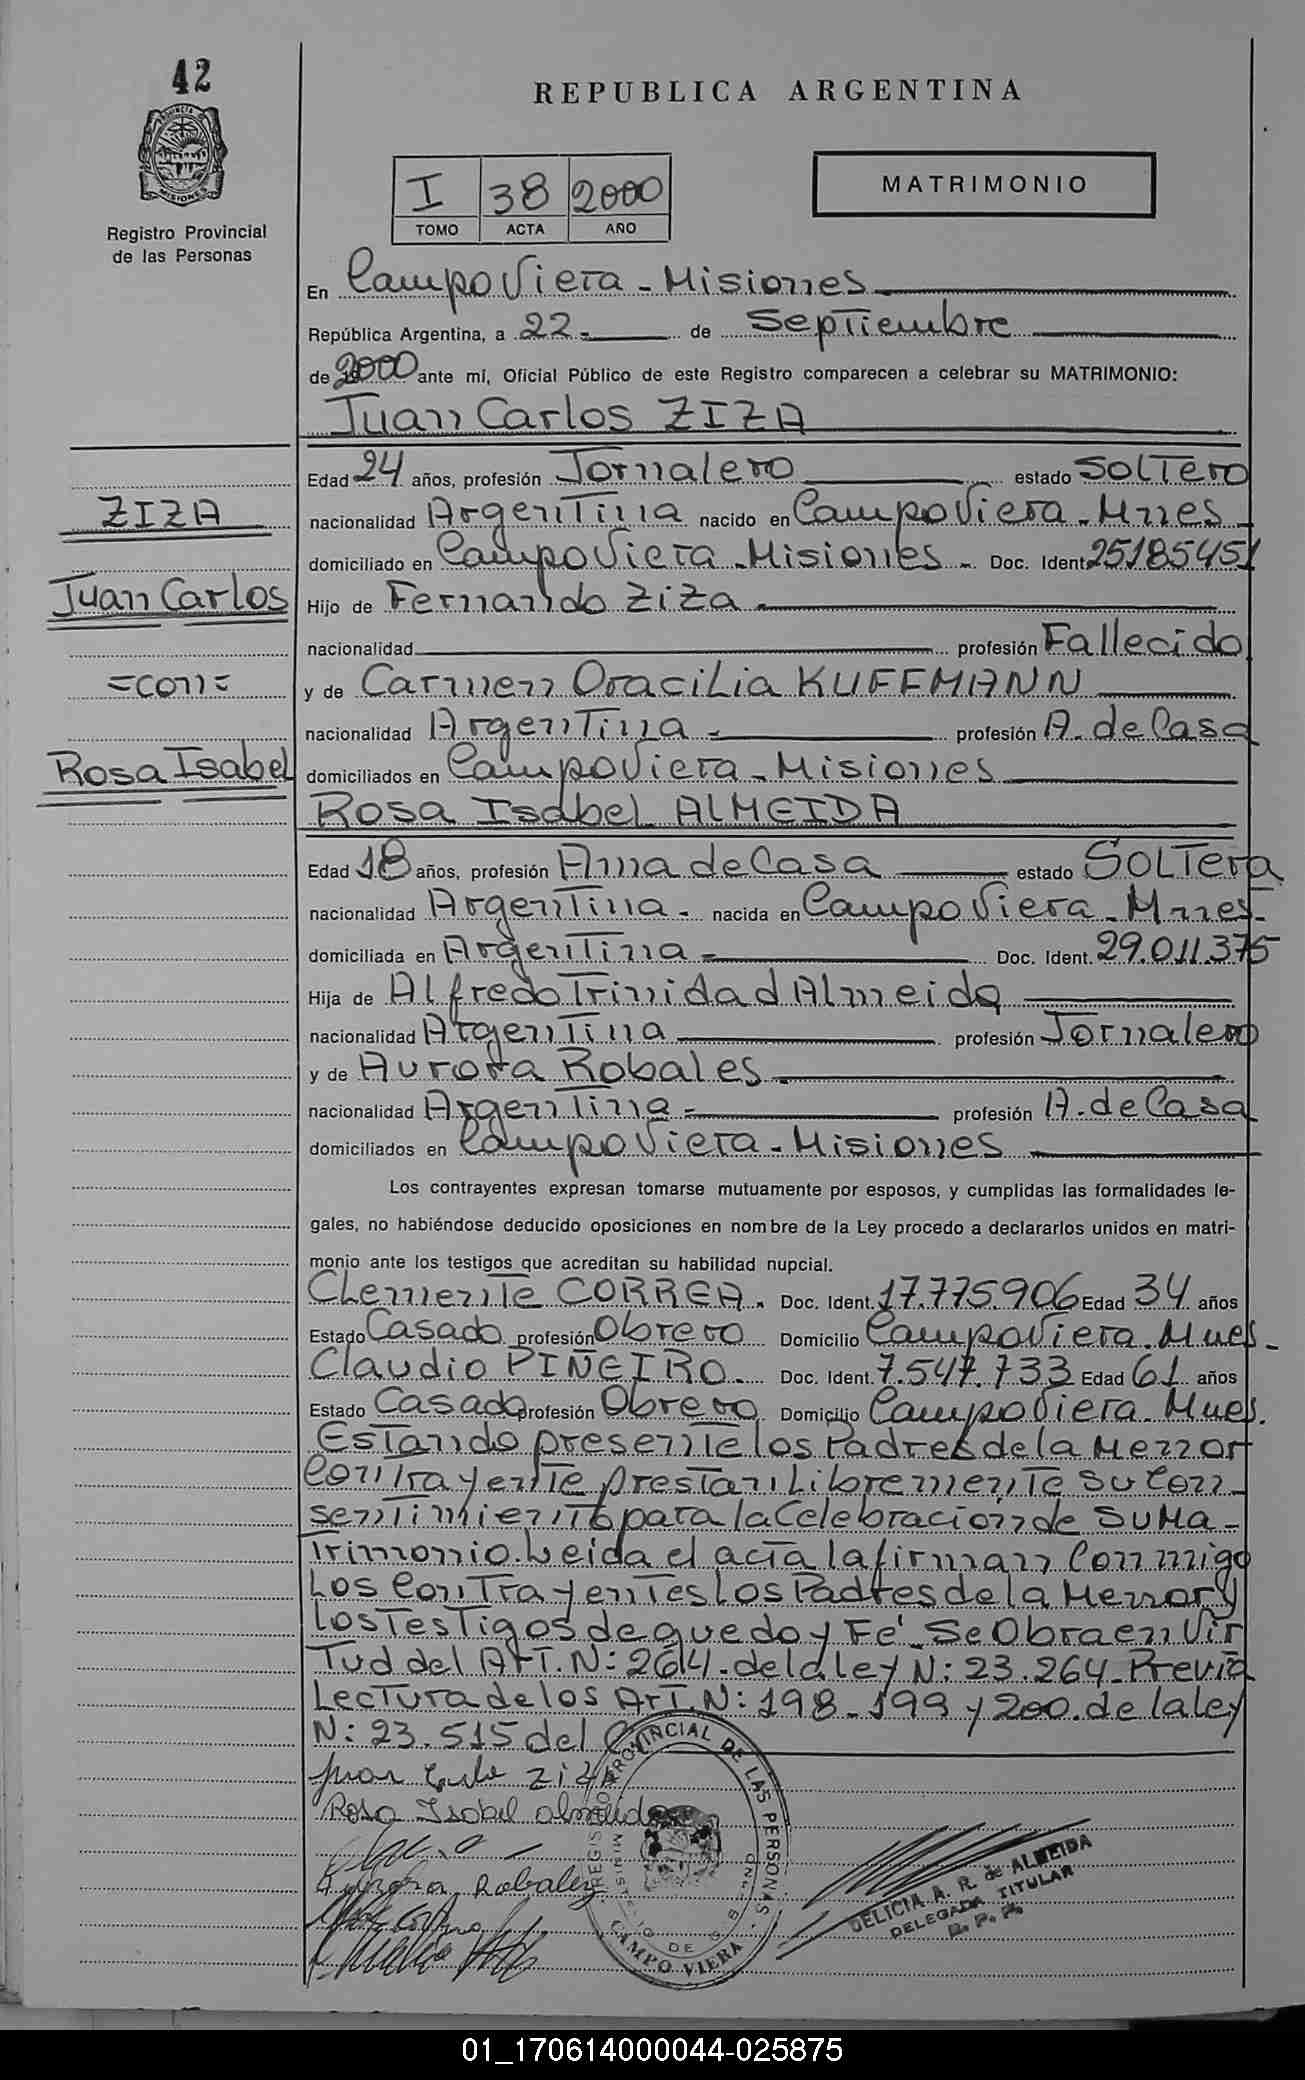 42
REPUBLICA ARGENTINA
PROVINCIA DE MISIONES
Registro Provincial
de las Personas
I 38 2000
TOMO ACTA AÑO
MATRIMONIO
En Campo Viera - Misiones
República Argentina, a 22- de Septiembre
de 2000 ante mí, Oficial Público de este Registro comparecen a celebrar su MATRIMONIO:
Juan Carlos ZIZA
Edad 24 años, profesión Jornalero estado Soltero
ZIZA
nacionalidad Argentina nacido en Campo Viera - Mnes
domiciliado en Campo Viera - Misiones - Doc. Ident. 25185451
Juan Carlos
Hijo de Fernando Ziza
nacionalidad profesión Fallecido
=con=
y de Carmen Oracilia KUFFMANN
nacionalidad Argentina - profesión A. de Casa
Rosa Isabel
domiciliados en Campo Viera - Misiones
Rosa Isabel ALMEIDA
Edad 18 años, profesión Ama de Casa estado Soltera
nacionalidad Argentina - nacida en Campo Viera - Mnes-
domiciliada en Argentina - Doc. Ident. 29.011.375
Hija de Alfredo Trinidad Almeida
nacionalidad Argentina profesión Jornalero
y de Aurora Robales
nacionalidad Argentina - profesión A. de Casa
domiciliados en Campo Viera - Misiones
Los contrayentes expresan tomarse mutuamente por esposos, y cumplidas las formalidades le-
gales, no habiéndose deducido oposiciones en nombre de la Ley procedo a declararlos unidos en matri-
monio ante los testigos que acreditan su habilidad nupcial.
Clemente CORREA. Doc. Ident. 17.775.906 Edad 34 años
Estado Casado profesión Obrero Domicilio Campo Viera. Mnes-
Claudio PIÑEIRO. Doc. Ident. 7.547.733 Edad 61 años
Estado Casado profesión Obrero Domicilio Campo Viera. Mnes.
Estando presente los Padres de la Menor
Contrayente prestan Libremente su Con
sentimiento para la Celebración de su Ma-
trimonio. Leida el acta la firman Conmigo
Los Contrayentes Los Padres de la Menor y
Los Testigos de que doy Fé. Se Obra en Vir
Tud del Art. N: 264. de la ley N: 23.264. Previa
Lectura de los Art. N: 198 - 199 y 200. de la ley
N: 23.515 del
Juan Carlos Ziza
Rosa Isabel almeida
Aurora Robales
REGISTRO PROVINCIAL DE LAS PERSONAS
CAMPO VIERA
DELICIA A. R. de ALMEIDA
DELEGADA TITULAR
R. P. P.
01_170614000044-025875